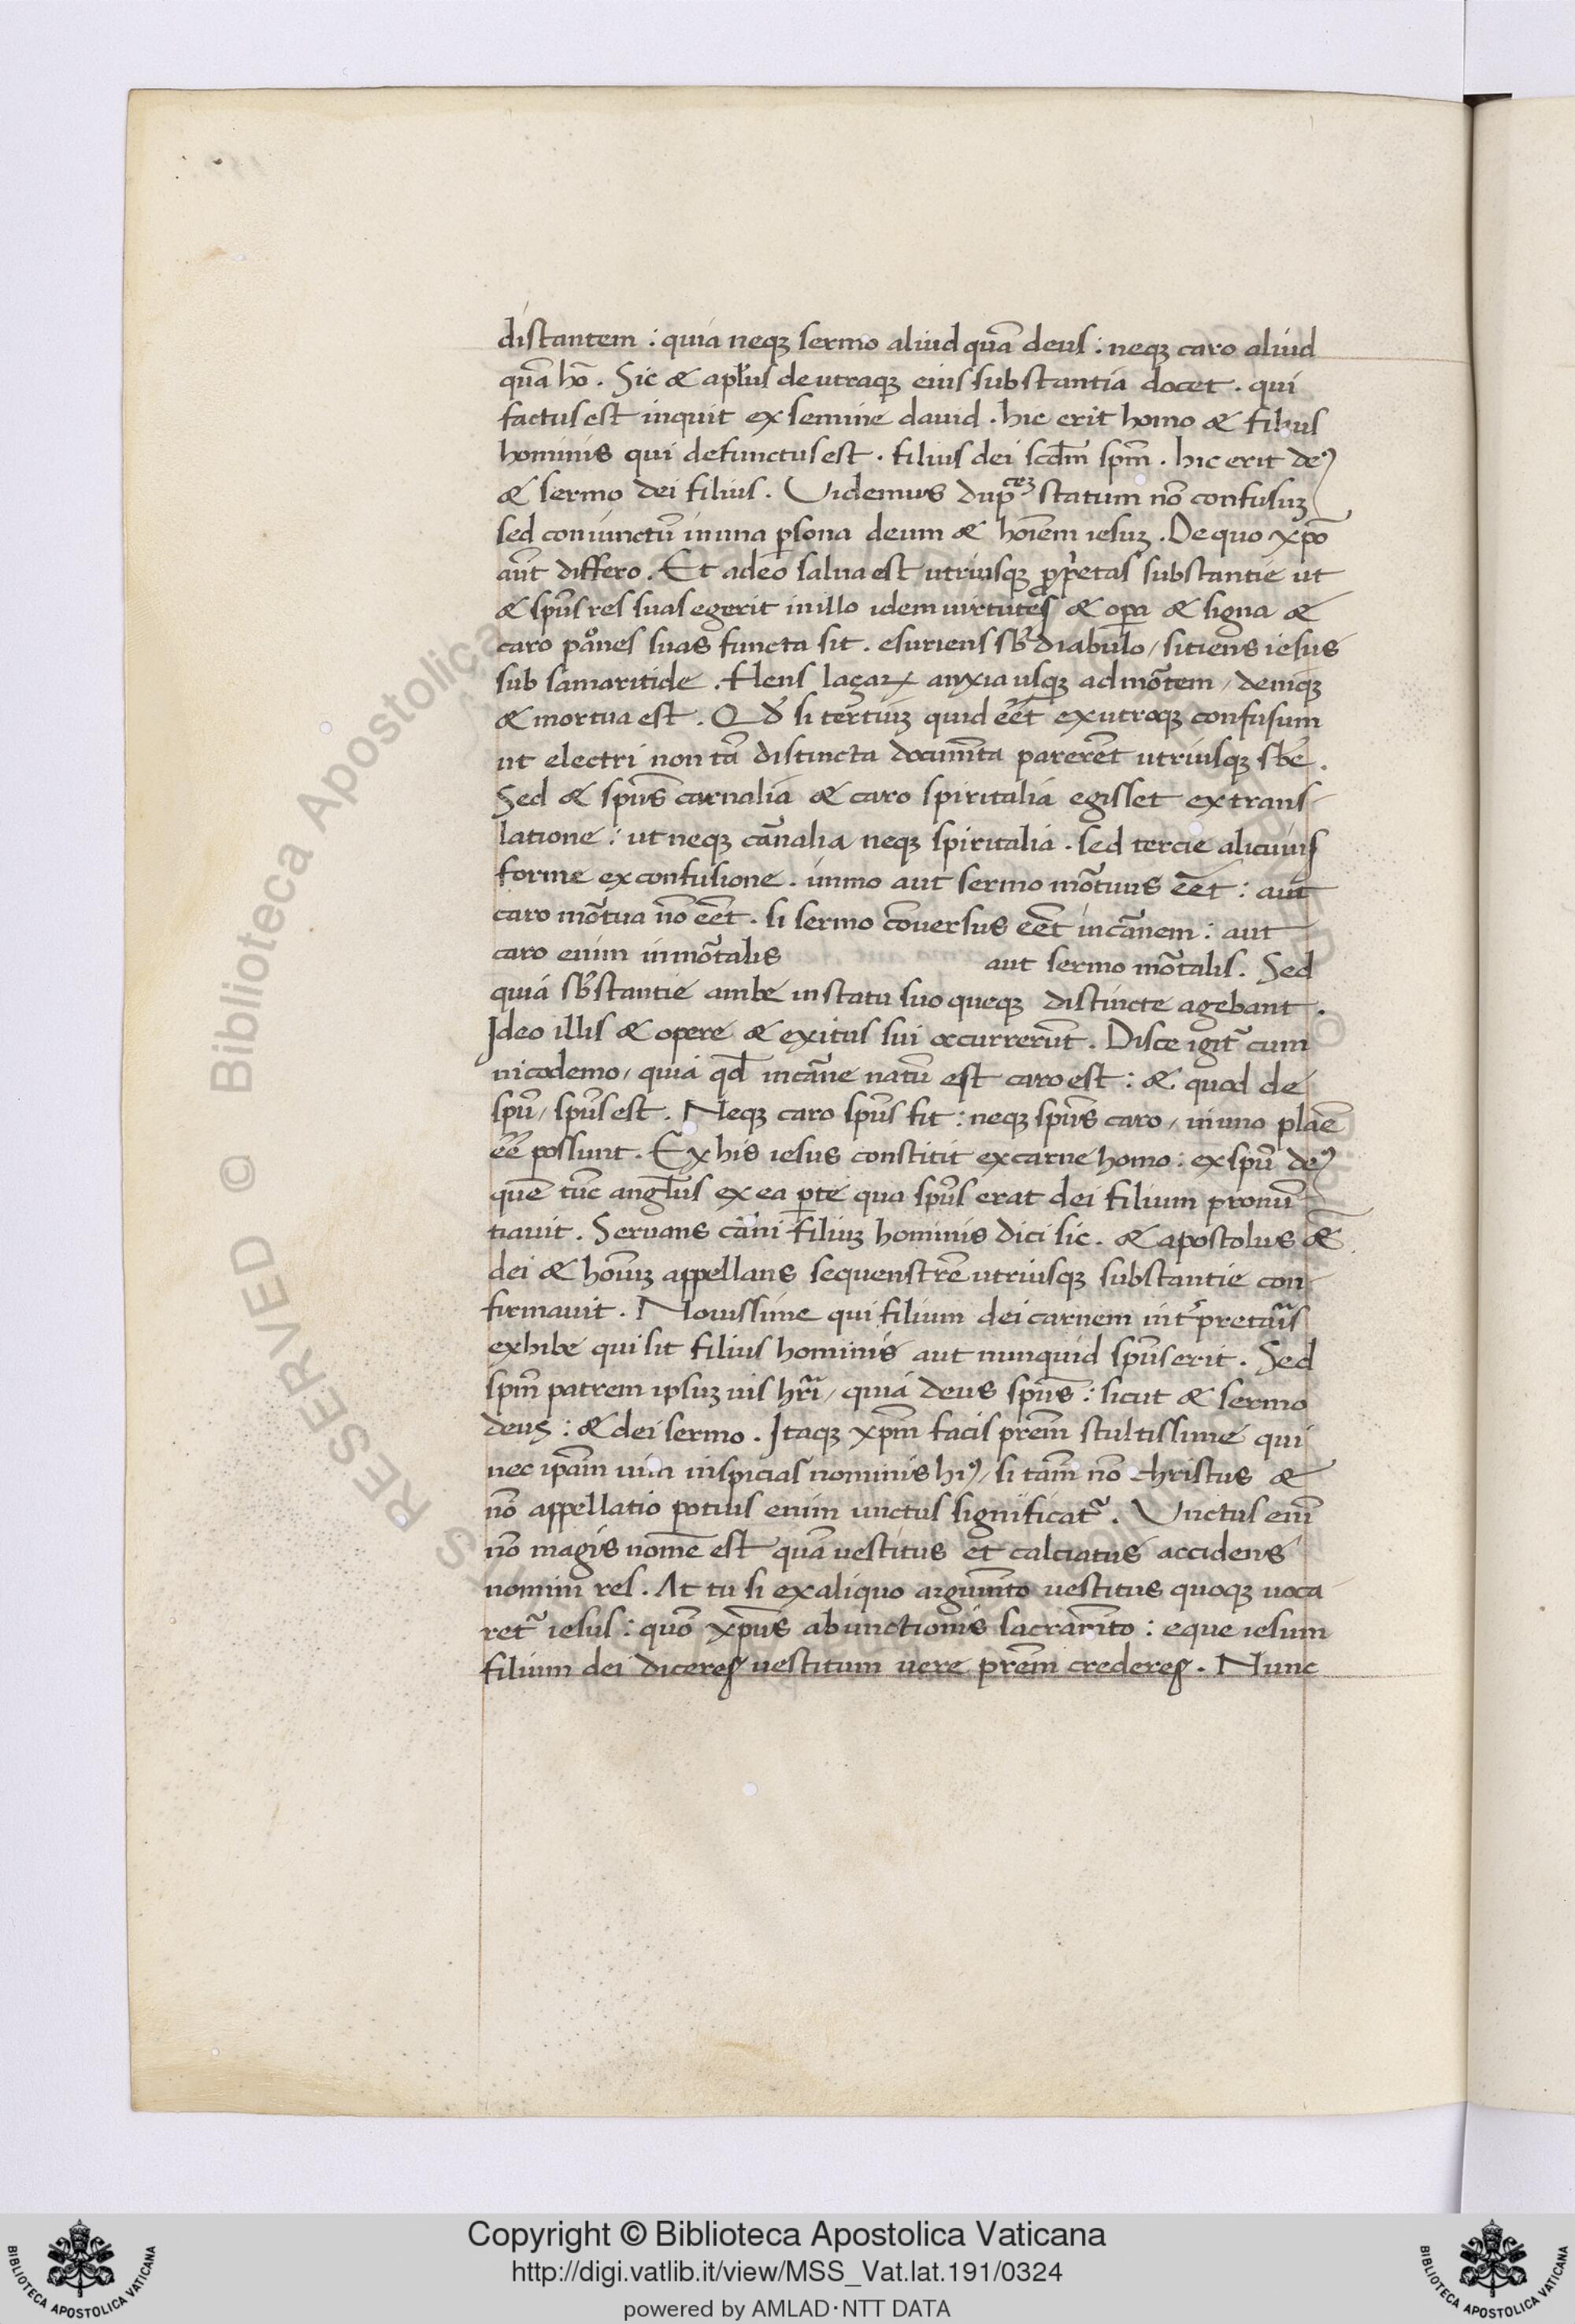 distantem : quia neqȝ sermo aliud quā deus : neqȝ caro aliud
quā hō . Sic & apl̄us de utraqȝ eius substantia docet . qui
factus est inquit ex semine dauid . hic erit homo & filius
hominis qui defunctus est . filius dei scd̄m spm̄ . hic erit deꝰ
& sermo dei filius . Videmus dup̄ceȝ statum nō confusuȝ
sed coniunctū in una ꝑsona deum & hoīem iesuȝ . De quo xp̄o
aūt differo . Et adeo salua est utriusqȝ ꝓp̓etas substantie ut
& spūs res suas egerit in illo idem uirtutes & oꝑa & signa &
caro pa͛nes suas functa sit . esuriens sb̓ diabulo / sitiens iesus
sub samaritide . flens laçaꝝ anxia usqȝ ad mōtem / deniqȝ
& mortua est . Qd̓ si tertiuȝ quid eēt ex utroqȝ confusum
ut electri non tā distincta documēta parerēt utriusqȝ sb̓e .
Sed & spūs carnalia & caro spiritalia egisset ex trans
latione : ut neqȝ cārnalia neqȝ spiritalia . sed tercie alicuius
forme ex confusione . immo aut sermo mōtuus eēt : aut
caro mōtua nō eēt . si sermo cōuersus eēt in cārnem : aut
caro enim inmōtalis aut sermo mōtalis . Sed
quia sb̓stantie ambe in statu suo queqȝ distincte agebant .
Ideo illis & opere & exitus sui occurrerūt . Disce igit̄ cum
nicodemo / quia qd̄ in cārne natū est caro est : & quod de
spū / spūs est . Neqȝ caro spūs fit : neqȝ spūs caro / in uno plāe
eē possunt . Ex his iesus constitit ex carne homo : ex spū deꝰ
quē tūc angl̄us ex ea ꝑte qua spūs erat dei filium pronū
tiauit . Seruans cārni filiuȝ hominis dici sic . & apostolus &
dei & hoīuȝ appellans sequenstrē utriusqȝ substantie con
firmauit . Nouissime qui filium dei carnem int̄pretār̄is
exhibe qui sit filius hominis aut nunquid spūs erit . Sed
spm̄ patrem ipsuȝ uis hr̄i / quia deus spūs : sicut & sermo
deus : & dei sermo . Itaqȝ xpm̄ facis prēm stultissime qui
nec ip̄am uim inspicias nominis hiꝰ / si tam̄ nō christus &
nō appellatio potius enim unctus significat̄ . Unctus enī
nō magis nomē est quā uestitus et calciatus accidens
nomini res . At tu si ex aliquo argumēto uestitus quoqȝ uoca
ret̄ iesus : quō xp̄us ab unctionis sacramēto : eque iesum
filium dei diceres uestitum uere prēm crederes . Nunc
Copyright © Biblioteca Apostolica Vaticana
http://digi.vatlib.it/view/MSS_Vat.lat.191/0324
powered by AMLAD·NTT DATA